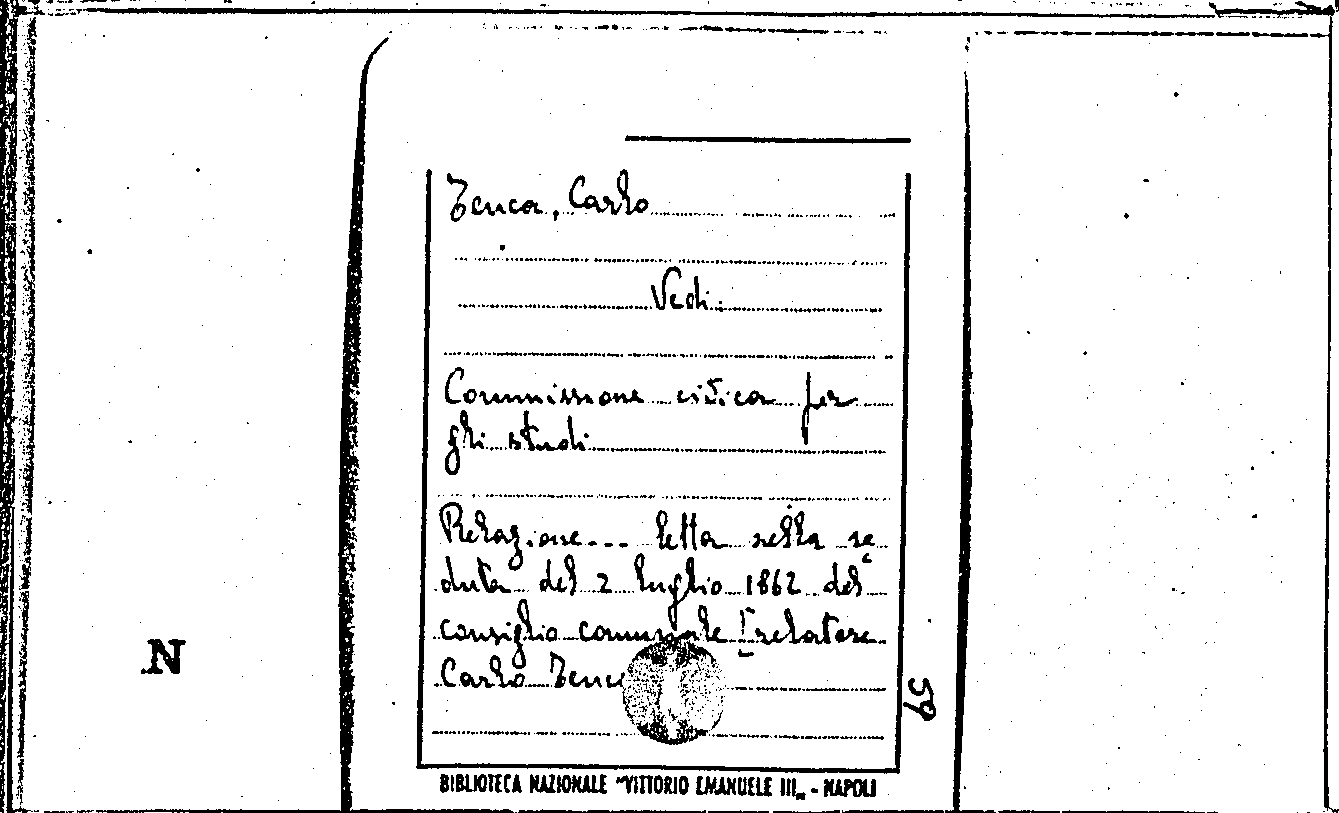 Tenca, Carlo
Vedi:
Commissione civica per
gli studi
Relazione... letta nella se
duta del 2 luglio 1862 del
consiglio comunale [relatore
Carlo Tenca
N
59
BIBLIOTECA NAZIONALE "VITTORIO EMANUELE III„ - NAPOLI